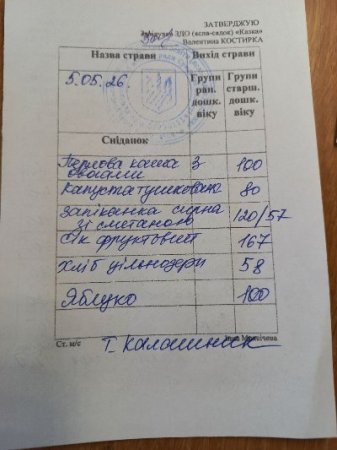 ЗАТВЕРДЖУЮ
ЗДО (ясла-садок) «Казка»
Валентина КОСТИРКА
Назва страви Вихід страви
5.05.26. Групи ран. дошк. віку Групи старш. дошк. віку
Сніданок
Перлова каша з 100
овочами
Капуста тушкована 80
Запіканка сирна 120/57
зі сметаною
Сік фруктовий 167
Хліб цільнозерн 58
Яблуко 100
Ст. м/с
Т. Калашник